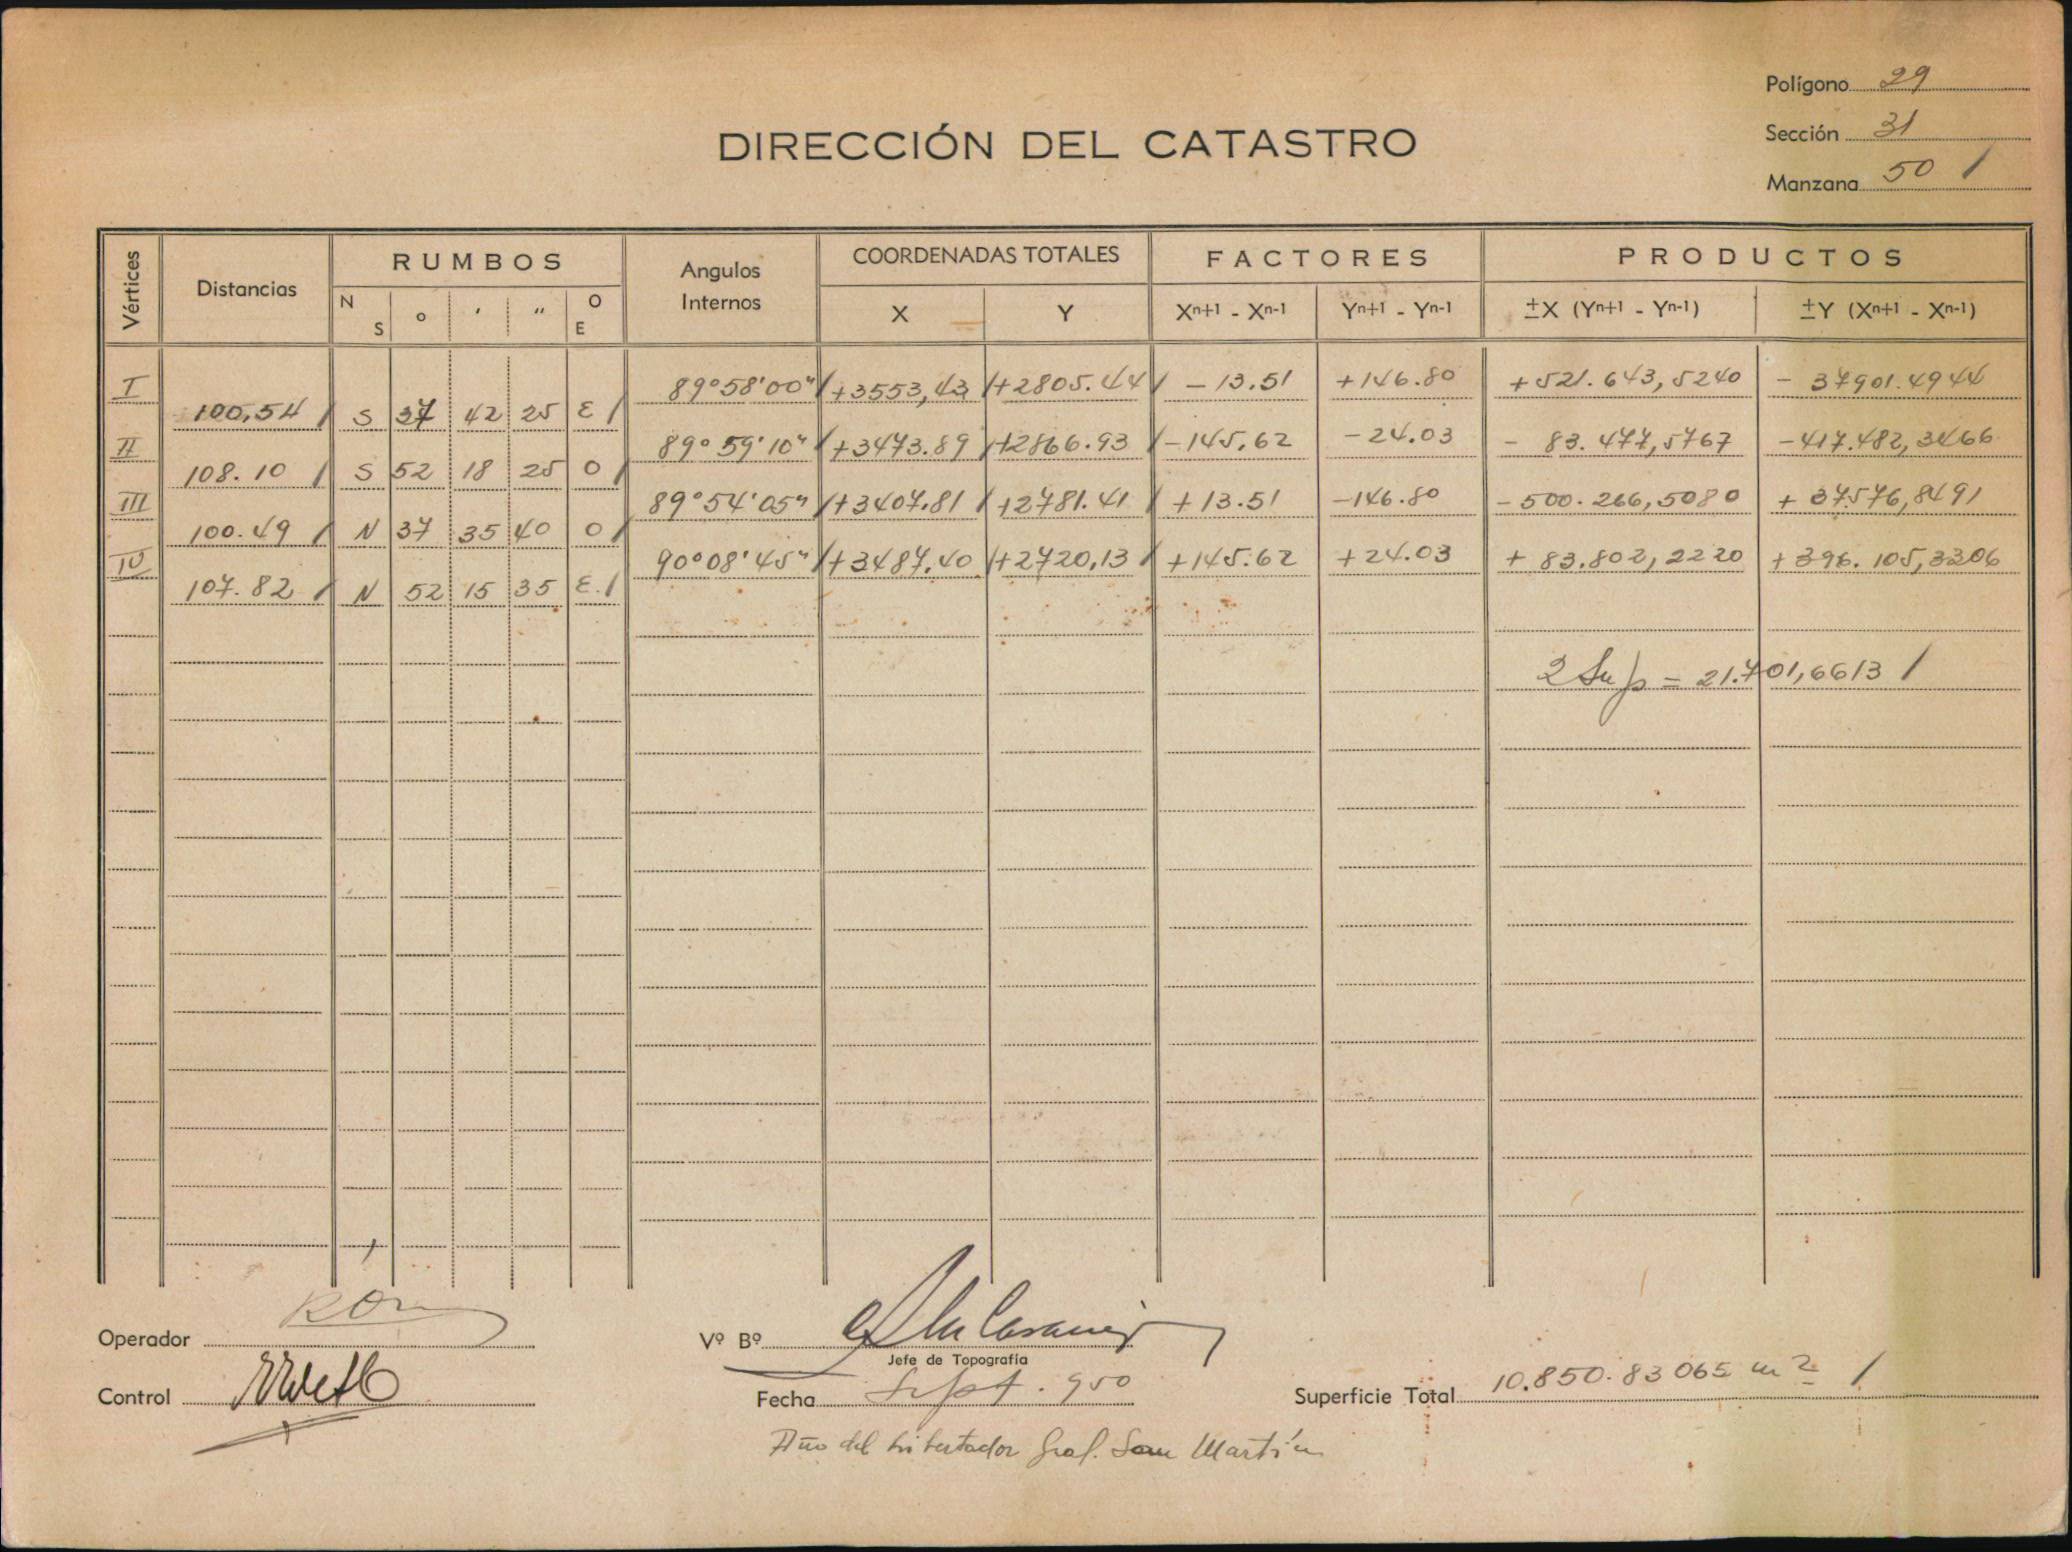 Polígono 29
DIRECCIÓN DEL CATASTRO
Sección 31
Manzana 50 /
Vértices
Distancias
RUMBOS
N S ° ′ ″ O E
Angulos Internos
COORDENADAS TOTALES
X Y
FACTORES
Xn+1 - Xn-1 Yn+1 - Yn-1
PRODUCTOS
±X (Yn+1 - Yn-1) ±Y (Xn+1 - Xn-1)
I 89°58'00" / +3553,43 / +2805.44 / - 13.51 +146.80 +521.643,5240 - 37901.4944
100,54 / S 37 42 25 E /
II 89°59'10" / +3473.89 / +2866.93 / -145,62 -24.03 - 83.477,5767 -417.482,3466
108.10 / S 52 18 25 O /
III 89°54'05" / +3407.81 / +2781.41 / +13.51 -146.80 -500.266,5080 + 37.576,8491
100.49 / N 37 35 40 O /
IV 90°08'45" / +3487.40 / +2720,13 / +145.62 +24.03 + 83.802,2220 +396.105,3306
107.82 / N 52 15 35 E. /
2 Sup = 21.701,6613 /
Operador
Vº Bº
Jefe de Topografía
Control
Fecha Sept. 950
Superficie Total 10.850.83065 m2 /
Año del Libertador Gral. San Martín